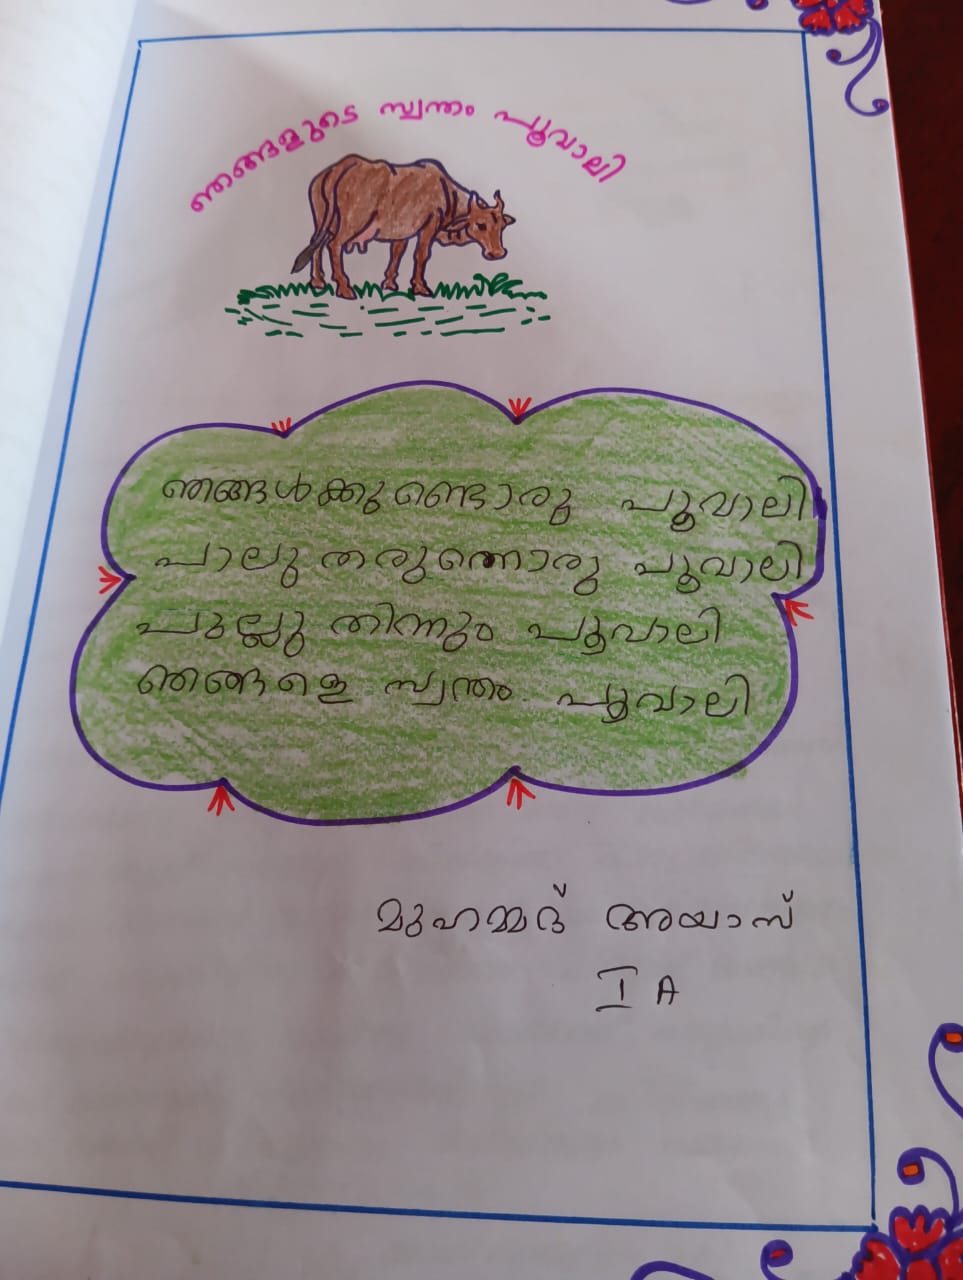 ഞങ്ങളുടെ സ്വന്തം പൂവാലി
ഞങ്ങൾക്കുണ്ടൊരു പൂവാലി
പാലു തരുന്നൊരു പൂവാലി
പുല്ലു തിന്നും പൂവാലി
ഞങ്ങളെ സ്വന്തം പൂവാലി
മുഹമ്മദ് അയാസ്
I A